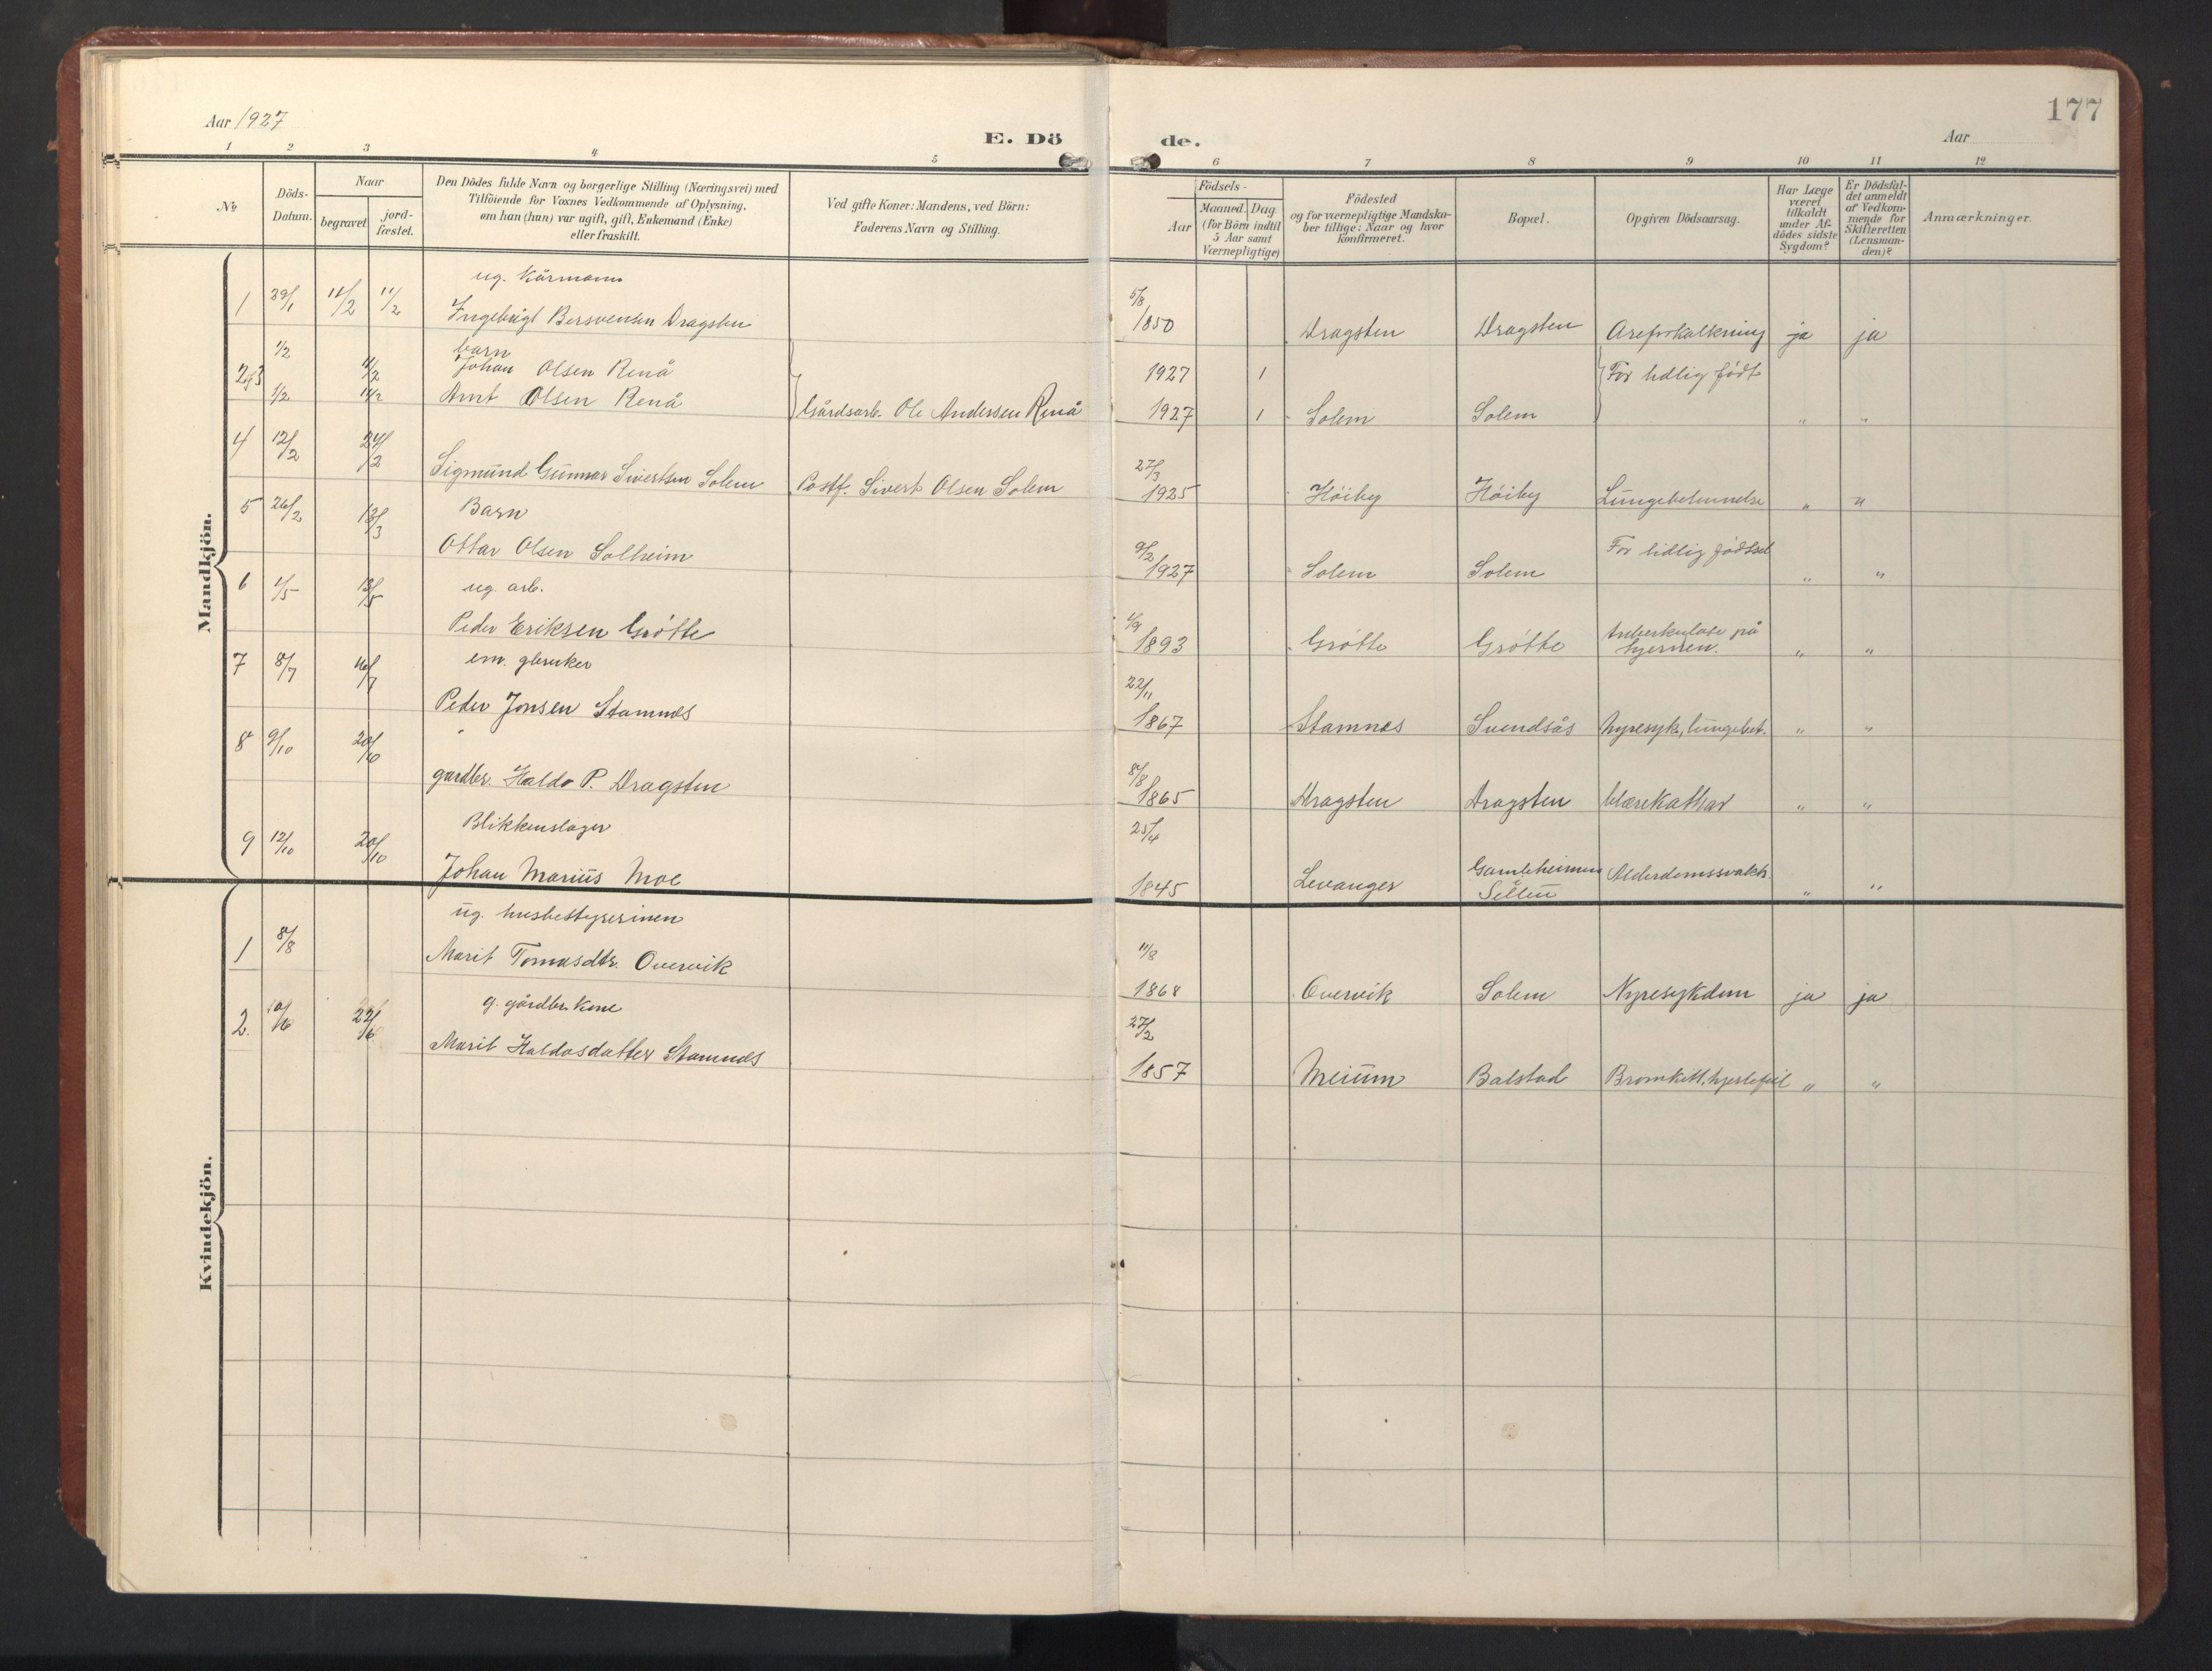 177
Aar 1927
E. Dö de.
Aar
1 2 3 4 5 6 7 8 9 10 11 12
No
Döds-
Datum.
Naar
begravet
jord-
fæstet.
Den Dödes fulde Navn og borgerlige Stilling (Næringsvei) med
Tilföiende for Voxnes Vedkommende af Oplysning,
om han (hun) var ugift, gift, Enkemand (Enke)
eller fraskilt.
Ved gifte Koner: Mandens, ved Börn:
Faderens Navn og Stilling.
Födsels-
Aar
Maaned. Dag
(for Börn indtil
5 Aar samt
Værnepligtige)
Födested
og for værnepligtige Mandska-
ber tillige: Naar og hvor
konfirmeret.
Bopæl.
Opgiven Dödsaarsag.
Har Læge
været
tilkaldt
under Af-
dödes sidste
Sygdom?
Er Dödsfal-
det anmeldt
af Vedkom-
mende for
Skifteretten
(Lensman-
den)?
Anmærkninger.
Mandkjön.
ug. Kårmann
1 29/1 11/2 11/2 Ingebrigt Bersvensen Dragsten 5/8 1850 Dragsten Dragsten Areforkalkning ja ja
barn
2 og 3 1/2 11/2 Johan Olsen Renå 1927 1 For tidlig født
1/2 11/2 Arnt Olsen Renå Gårdsarb. Ole Andersen Renå 1927 1 Solem Solem " "
4 12/2 24/2 Sigmund Gunnar Sivertsen Solem Postf. Sivert Olsen Solem 27/3 1925 Höiby Höiby Lungebetennelse " "
Barn
5 26/2 13/3 Ottar Olsen Solheim 9/2 1927 Solem Solem For tidlig fødsel " "
ug. arb.
6 1/5 13/5 Peder Eriksen Grötte 1/9 1893 Grötte Grötte tuberkulose på
hjernen. " "
em. gbruker
7 8/7 16/7 Peder Jonsen Stamnes 22/11 1867 Stamnes Svendsås Nyresyk, lungebet. " "
8 9/10 20/10 gardbr. Haldo P. Dragsten 8/8 1865 Dragsten Dragsten blærekathar " "
Blikkenslager
9 12/10 20/10 Johan Marius Moe 25/4 1845 Levanger Gamleheimen
Selbu Alderdomssvakh. " "
Kvindekjön.
ug. husbestyrerinen
1 8/8 Marit Tomasdtr. Overvik 11/8 1868 Overvik Solem Nyresykdom ja ja
g. gårdbr. Kone
2. 22/6 Marit Haldosdatter Stamnes 27/2 1857 Meium Balstad Bronkitt, hjertefeil " "